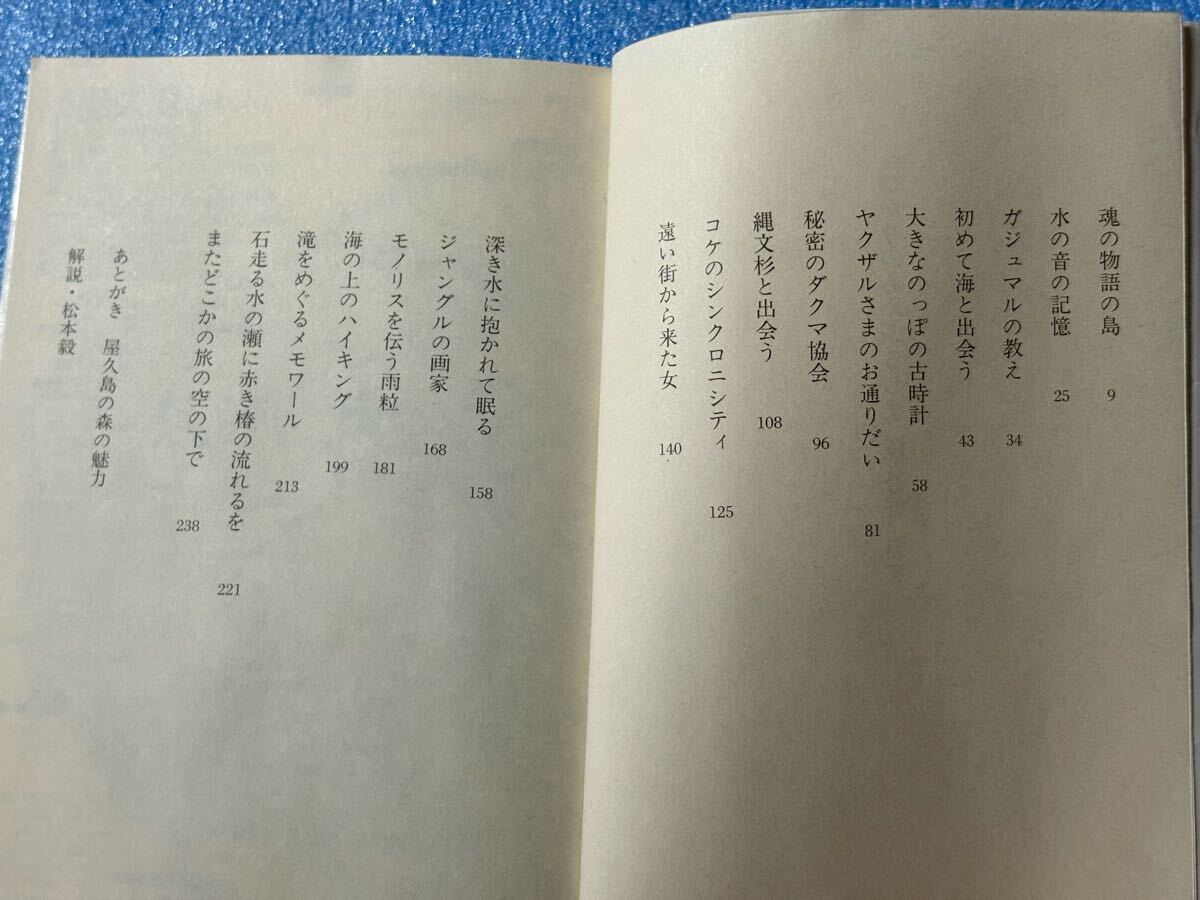 魂の物語の島 9
水の音の記憶 25
ガジュマルの教え 34
初めて海と出会う 43
大きなのっぽの古時計 58
ヤクザルさまのお通りだい 81
秘密のダクマ協会 96
縄文杉と出会う 108
コケのシンクロニシティ 125
遠い街から来た女 140
深き水に抱かれて眠る 158
ジャングルの画家 168
モノリスを伝う雨粒 181
海の上のハイキング 199
滝をめぐるメモワール 213
石走る水の瀬に赤き椿の流れるを 221
またどこかの旅の空の下で 238
あとがき 屋久島の森の魅力
解説・松本毅